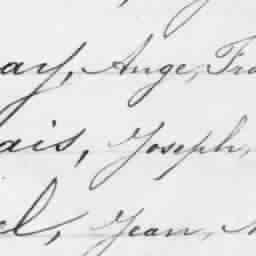 ay, Ange, Fra
ais, Joseph,
el, Jean, M